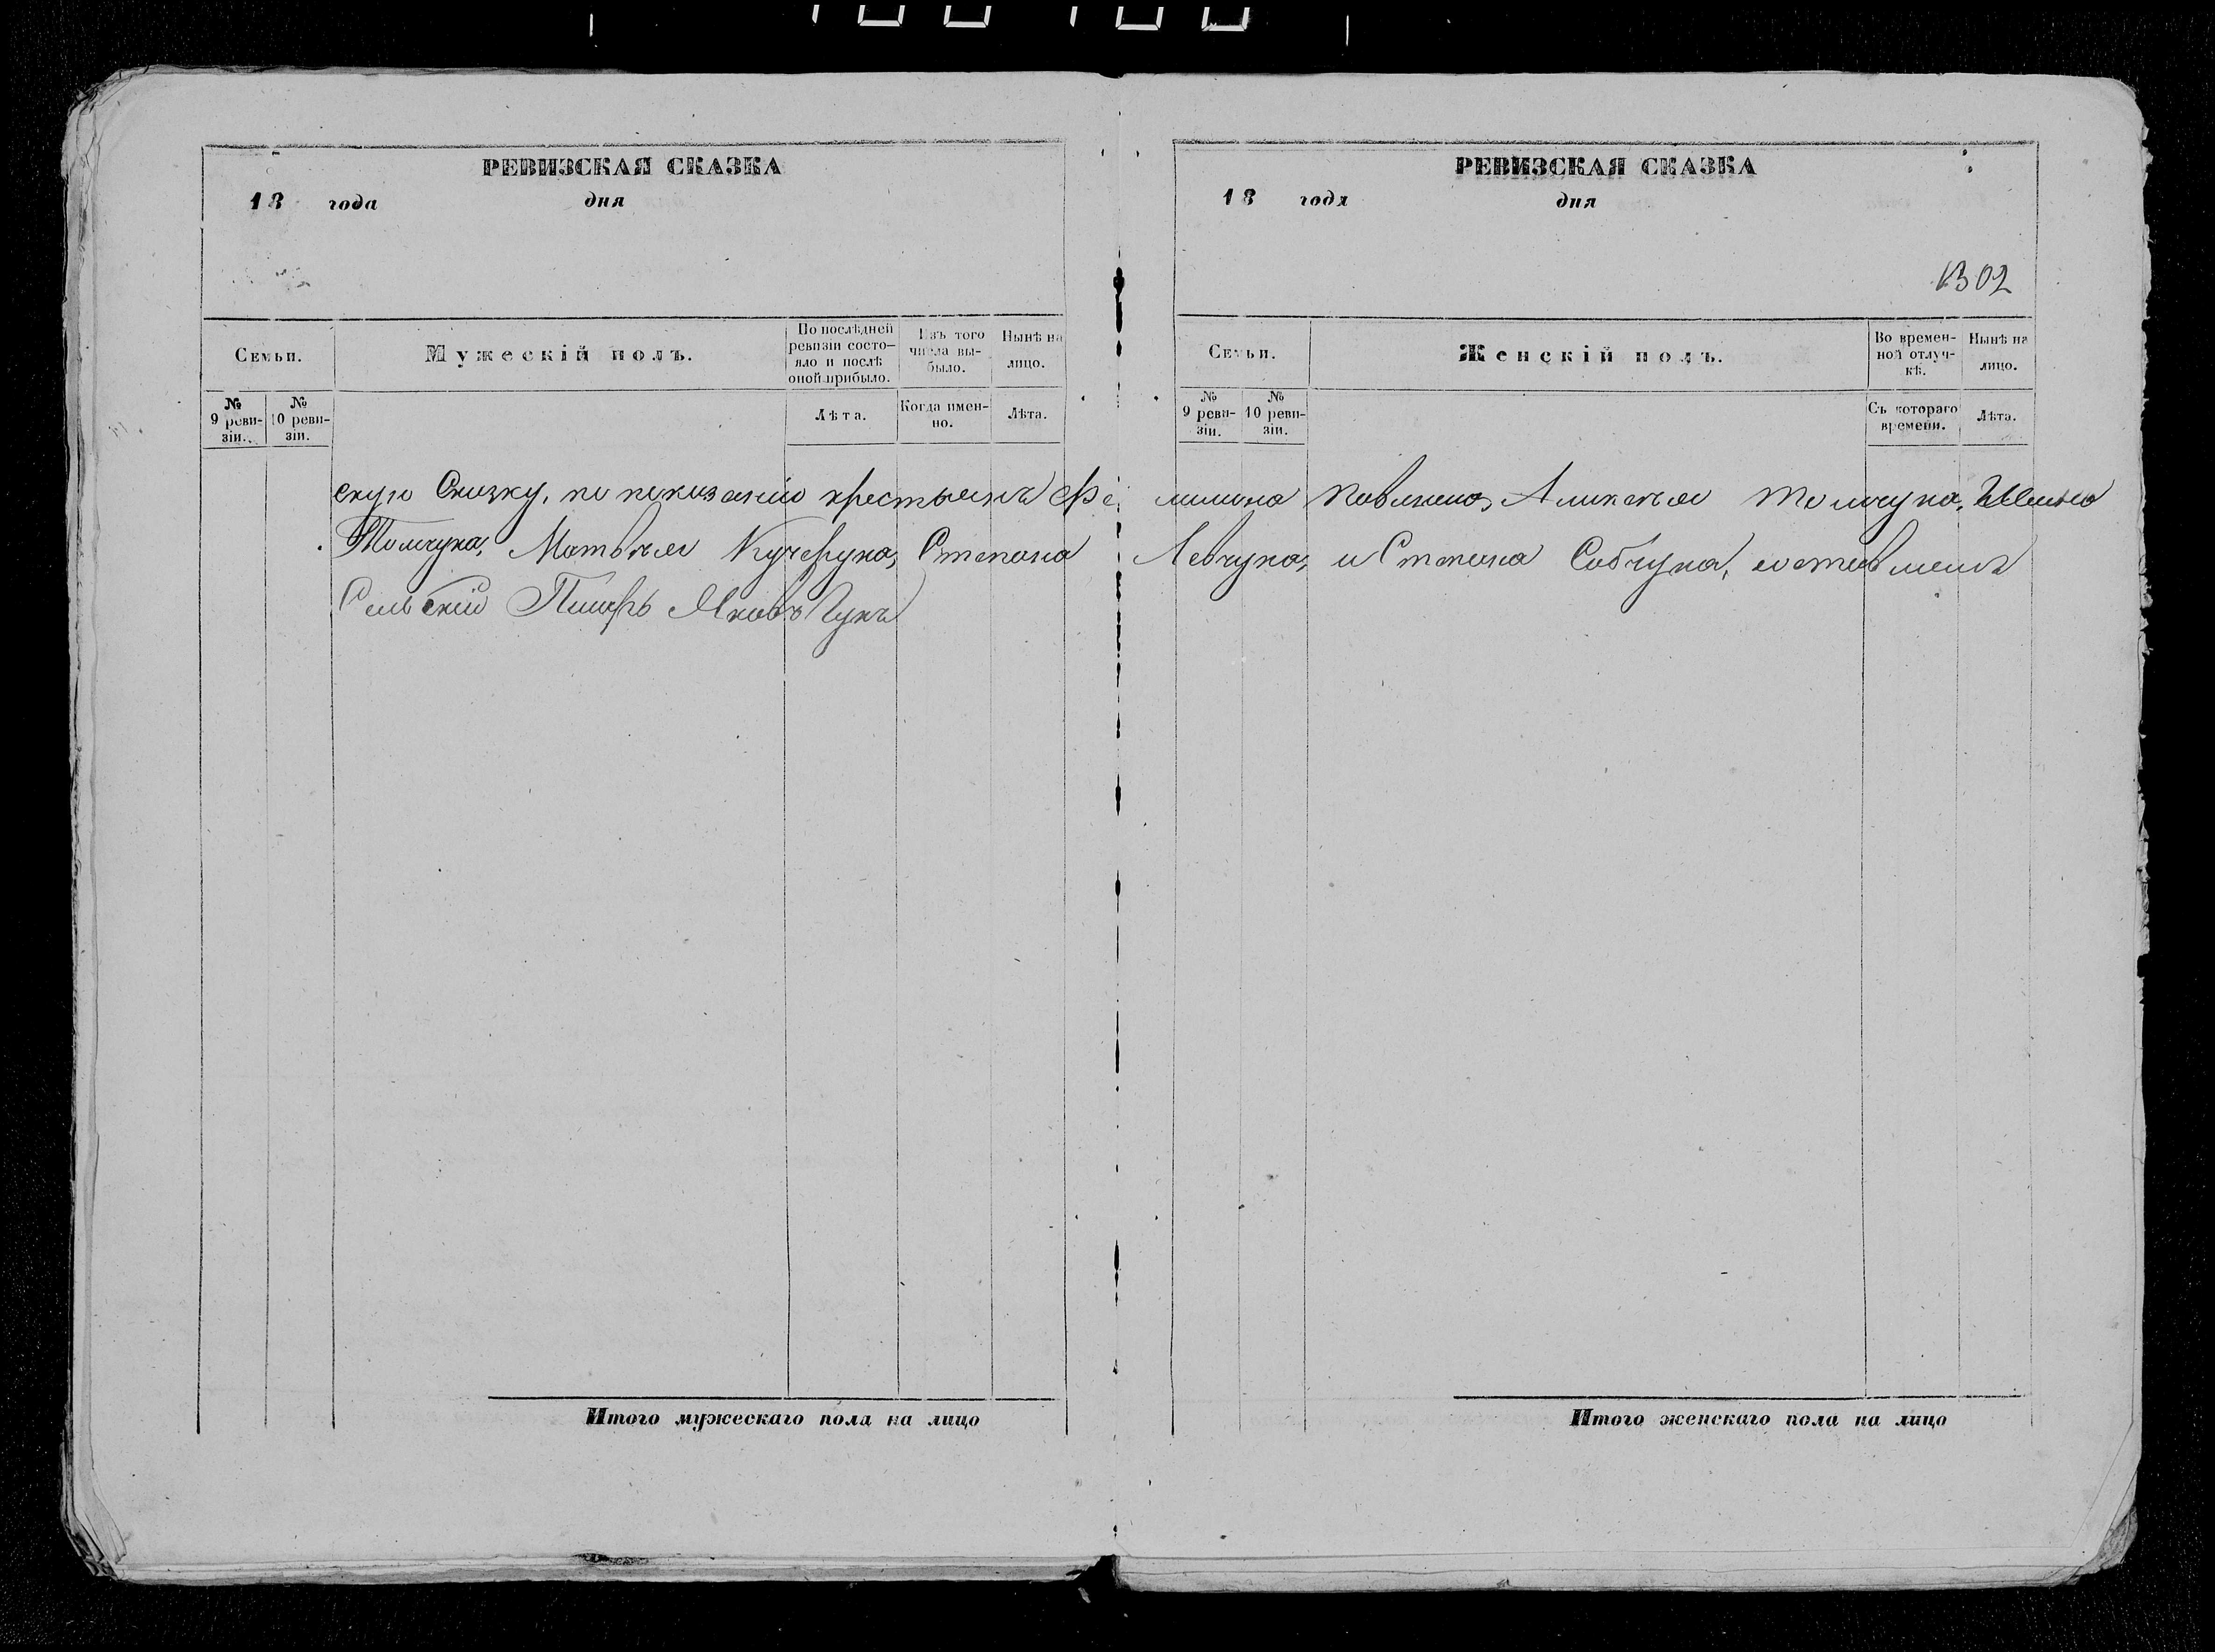 РЕВИЗСКАЯ СКАЗКА
18 года дня
Семьи.
Мужескій полъ.
По послѣдней ревизіи состояло и послѣ оной прибыло.
Изъ того числа выбыло.
Нынѣ на лицо.
№ 9 ревизіи.
№ 10 ревизіи.
Лѣта.
Когда именно.
Лѣта.
скую Сказку, по показанію крестьянъ
Томчука, Матвѣя Кучерука, Степана
Сельскій Писарь Яковъ Гукъ
Итого мужескаго пола на лицо
РЕВИЗСКАЯ СКАЗКА
18 года дня
1302
Семьи.
Женскій полъ.
Во временной отлучкѣ.
Нынѣ на лицо.
№ 9 ревизіи.
№ 10 ревизіи.
Съ котораго времени.
Лѣта.
Томчука,
Левчука, и Степана Собчука,
Итого женскаго пола на лицо